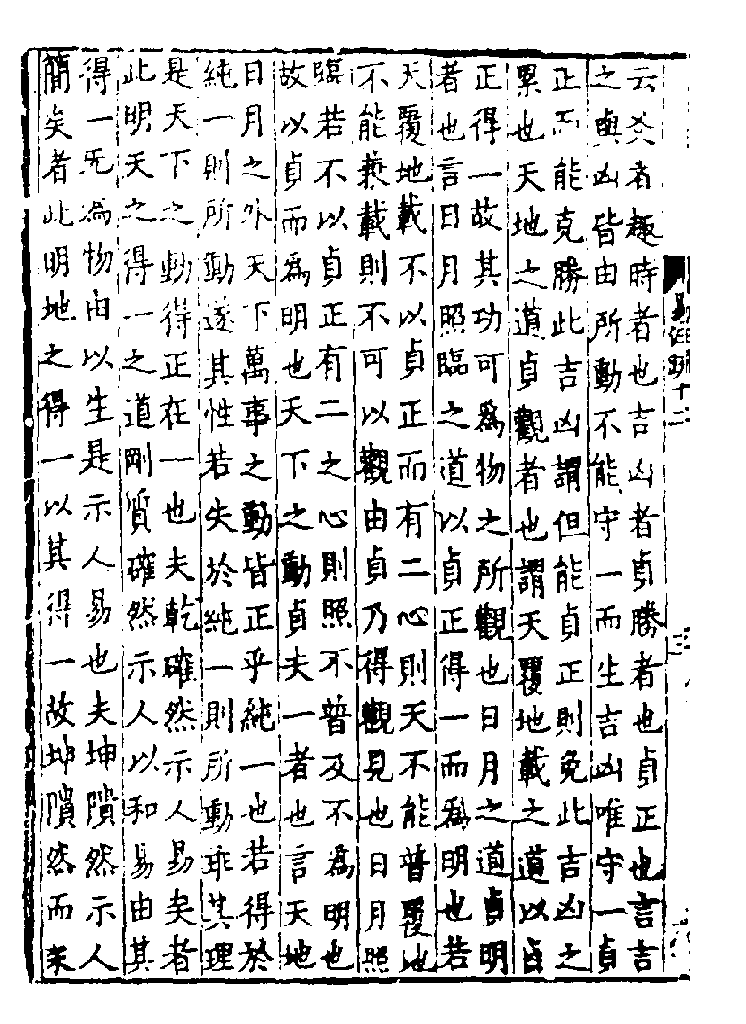 云爻者趣時者也吉凶者貞勝者也貞正也言吉
之與凶皆由所動不能守一而生吉凶唯守一貞
正而能克勝此吉凶謂但能貞正則免此吉凶之
累也天地之道貞觀者也謂天覆地載之道以貞
正得一故其功可為物之所觀也日月之道貞明
者也言日月照臨之道以貞正得一而為明也若
天覆地載不以貞正而有二心則天不能普覆地
不能兼載則不可以觀由貞乃得觀見也日月照
臨若不以貞正有二之心則照不普及不為明也
故以貞而為明也天下之動貞夫一者也言天地
日月之外天下萬事之動皆正乎純一也若得於
純一則所動遂其性若失於純一則所動乖其理
是天下之動得正在一也夫乾確然示人易矣者
此明天之得一之道剛質確然示人以和易由其
得一无為物由以生是示人易也夫坤隤然示人
簡矣者此明地之得一以其得一故坤隤然而柔
易注疏十二